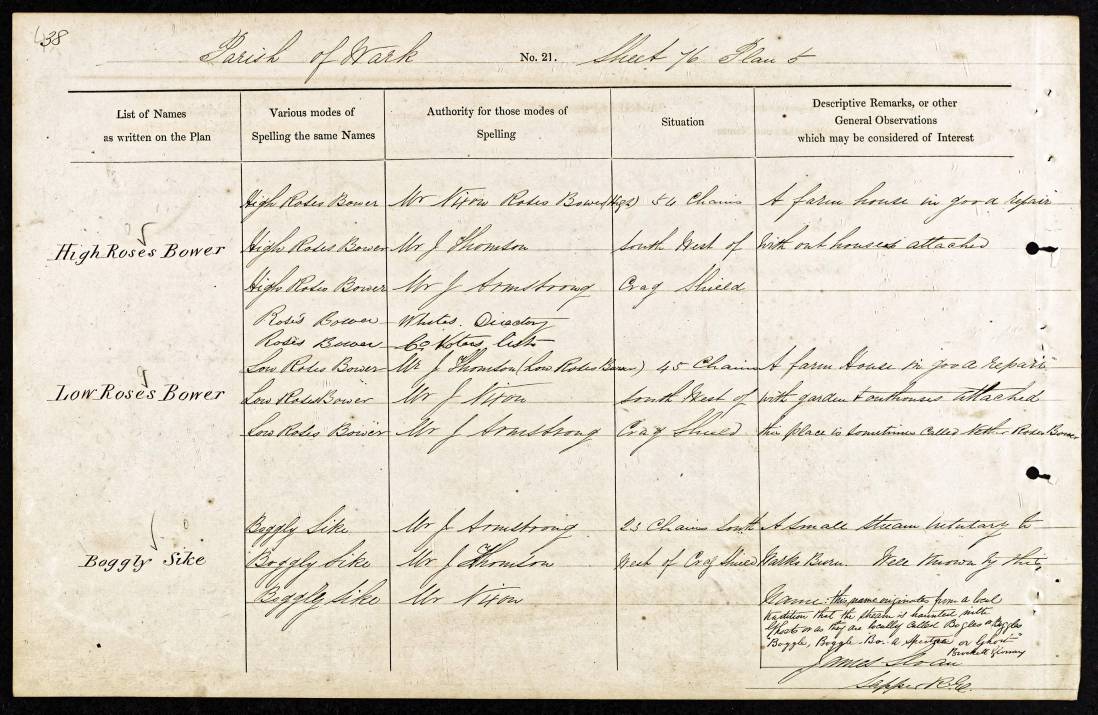 38
Parish of Wark No. 21. Sheet 76 Plan 5
List of Names as written on the Plan
Various modes of Spelling the same Names
Authority for those modes of Spelling
Situation
Descriptive Remarks, or other General Observations which may be considered of Interest
High Roses Bower
High Roses Bower Mr Nixon Roses Bower (High) 54 Chains A farm house in good repair
High Roses Bower Mr J Thomson South West of with out houses attached
High Roses Bower Mr J Armstrong Crag Shield
Roses Bower Whites Directory
Roses Bower Co Voters list
Low Roses Bower
Low Roses Bower Mr J Thomson (Low Roses Bower) 45 Chains A farm House in good repair
Low Roses Bower Mr J Nixon South West of with garden & outhouses attached
Low Roses Bower Mr J Armstrong Crag Shield this place is sometimes called Nether Roses Bower
Boggly Sike
Boggly Sike Mr J Armstrong 23 Chains South A small stream tributary to
Boggly Sike Mr J Thomson West of Crag Shield Warks Burn Well known by this
Boggly Sike Mr Nixon
Name: this name originates from a local
tradition that the stream is haunted with
Ghosts or as they are locally called Bogles or Boggles
"Boggle, Boggle-Bo. a Spectre or Ghost"
Brockett's Glossary
James Sloan
Sapper R.E.